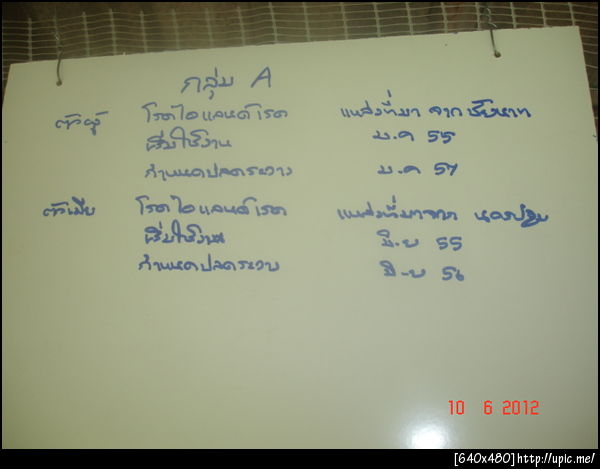 กลุ่ม A
ตัวผู้ โรดไอแลนด์เรด แหล่งที่มา จาก ชัยนาท
เริ่มใช้งาน ม.ค 55
กำหนดปลดระวาง ม.ค 57
ตัวเมีย โรดไอแลนด์เรด แหล่งที่มาจาก นครปฐม
เริ่มใช้งาน มิ.ย 55
กำหนดปลดระวาง มิ.ย 56
10 6 2012
[640x480]http://upic.me/